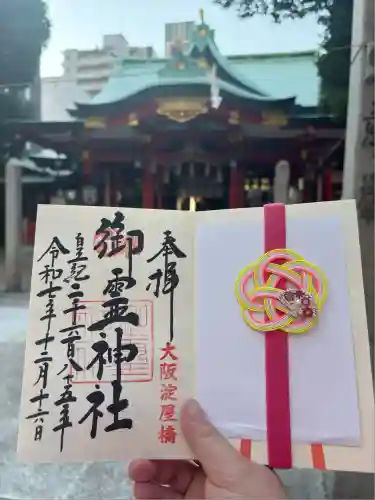 奉拝
大阪淀屋橋
御霊神社
皇紀二千六百八十五年
令和七年十二月十六日